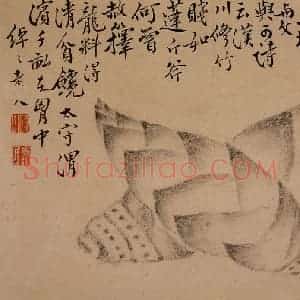 與可詩
云漢
川修竹
賤如
蓬斤斧
何曾
赦籜
龍料得
清貧饞太守渭
濱千畝在胸中
Shufaziliao.COM